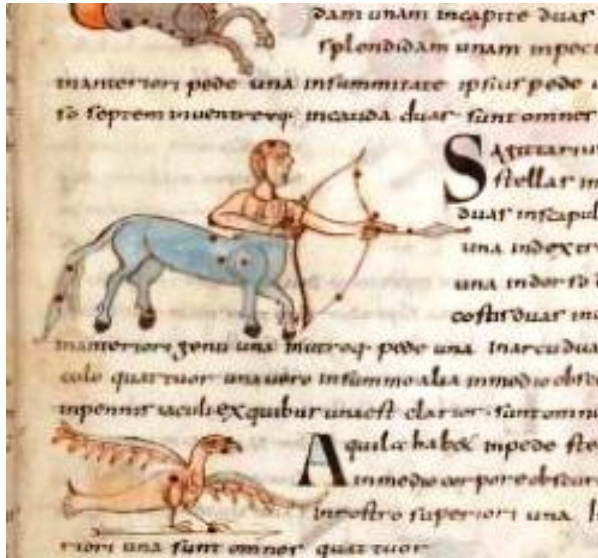 dam unam incapite duas
splendidam unam inpect
inanteriori pede una insummitate ipsius pede
septem inventreq; incauda duas sunt omnes
Sagittarius
stellas in
duas inscapul
una indextr
una indorso
costis duas in
inanteriori genu una inutroq; pede una Inarcu dua
quattuor una vero insummo alia inmedio obsc
inpennis iaculi exquibus una est clarior sunt omn
Aquila habet inpede ste
inmedio corpore obscur
inrostro superiori una
riori una sunt omnes quattuor